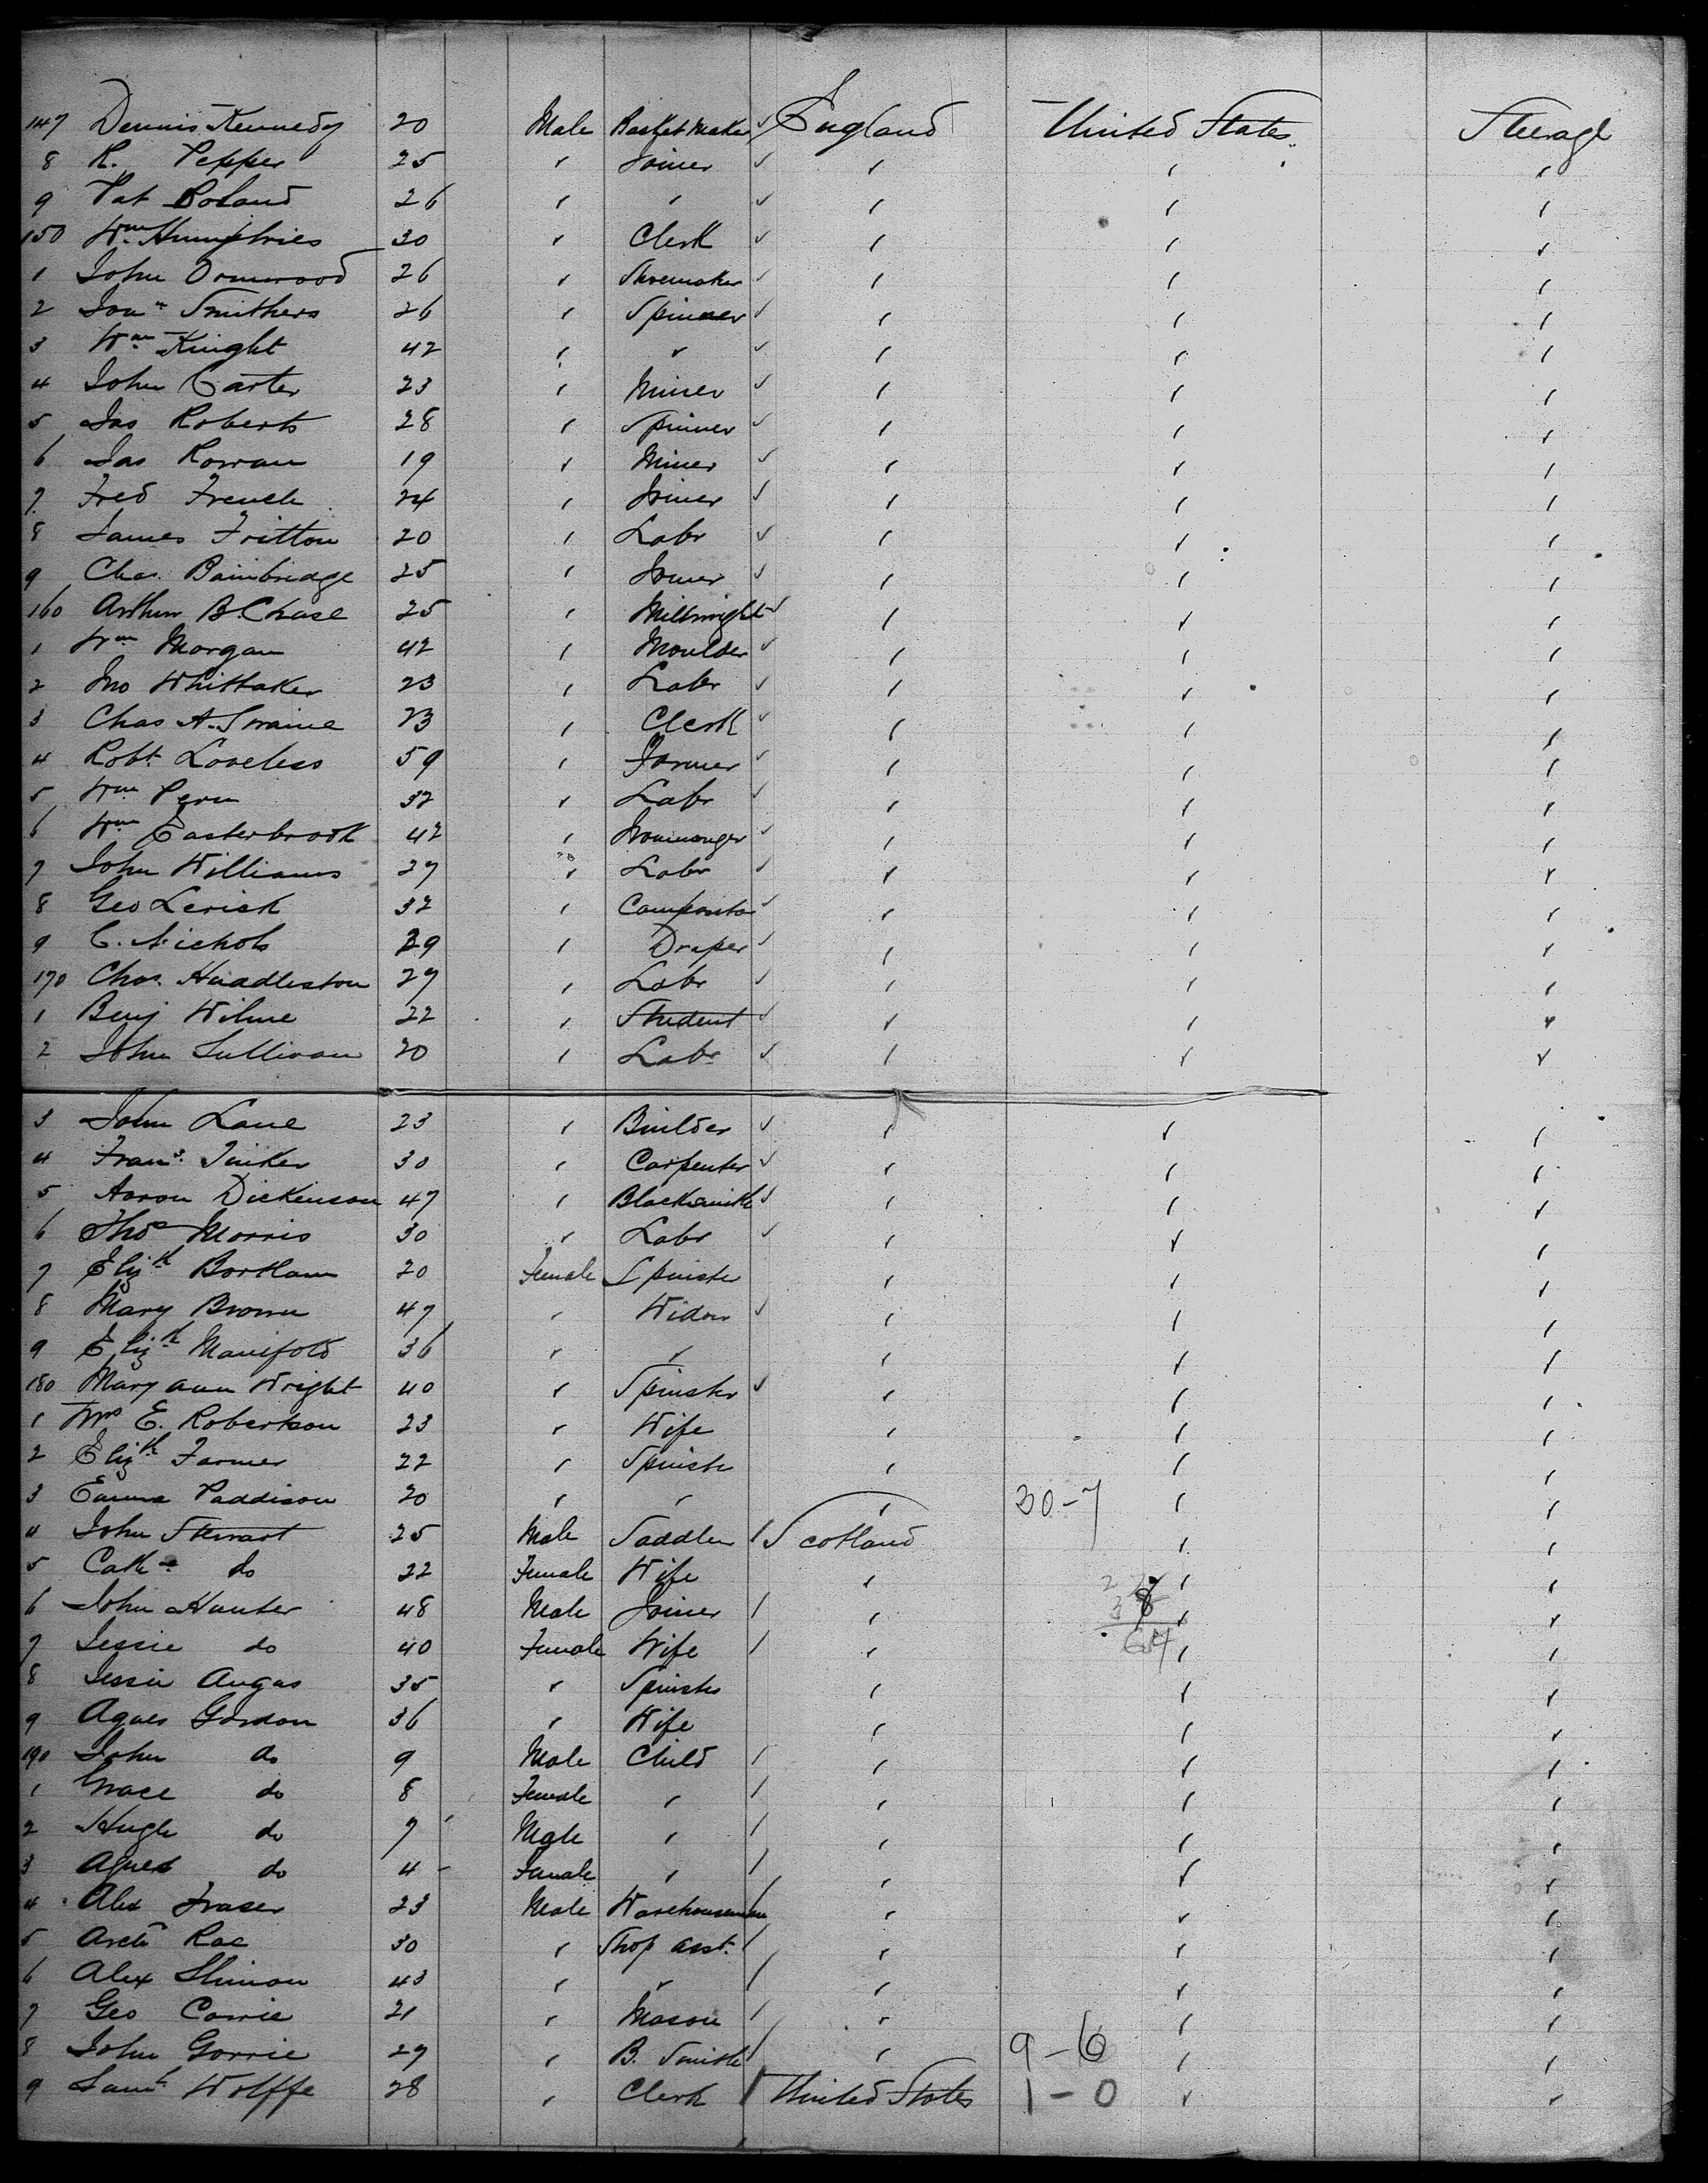 147 Dennis Kennedy 20 Male Basket Maker ✓ England United States Steerage
8 R. Pepper 25 " Joiner ✓ " " "
9 Pat Boland 26 " " ✓ " " "
150 Wm Humphries 30 " Clerk ✓ " " "
1 John Ormerod 26 " Shoemaker ✓ " " "
2 Jonn Smithers 26 " Spinner ✓ " " "
3 Wm Knight 42 " " ✓ " " "
4 John Carter 23 " Miner ✓ " " "
5 Jas Roberts 28 " Spinner ✓ " " "
6 Jas Rowan 19 " Miner ✓ " " "
7 Fred French 24 " Joiner ✓ " " "
8 James Fritton 20 " Labr ✓ " " "
9 Chas. Bainbridge 25 " Joiner ✓ " " "
160 Arthur B. Chase 25 " Millwright ✓ " " "
1 Wm Morgan 42 " Moulder ✓ " " "
2 Jno Whittaker 23 " Labr ✓ " " "
3 Chas A. Swaine 23 " Clerk ✓ " " "
4 Robt. Loveless 59 " Farmer ✓ " " "
5 Wm 32 " Labr ✓ " " "
6 Wm Easterbrook 42 " Ironmonger ✓ " " "
7 John Williams 27 " Labr ✓ " " "
8 Geo 32 " Compositor ✓ " " "
9 C. Nichols 29 " Draper ✓ " " "
170 Chas. Huddleston 27 " Labr ✓ " " "
1 Benj Wilme 22 " Student ✓ " " "
2 John Sullivan 20 " Labr ✓ " " "
3 John Lane 23 " Builder ✓ " " "
4 Frans. Tinker 30 " Carpenter ✓ " " "
5 Aaron Dickenson 47 " Blacksmith ✓ " " "
6 Thos Morris 30 " Labr ✓ " " "
7 Elizth 20 Female Spinster " " "
8 Mary Brown 47 " Widow ✓ " " "
9 Elizth Manifold 36 " " " " "
180 Mary Ann Wright 40 " Spinster ✓ " " "
1 Mrs E. Robertson 23 " Wife " " "
2 Elizth Farmer 22 " Spinster " " "
3 Emma Paddison 20 " " " 30-7 " "
4 John Stewart 25 Male Saddler / Scotland " "
5 Cath do 22 Female Wife " " "
6 John Hunter 48 Male Joiner / " " "
7 Jessie do 40 Female Wife / " 64 " "
8 Jessie Angus 35 " Spinster " " "
9 Agnes Gordon 36 " Wife " " "
190 John do 9 Male Child / " " "
1 Grace do 8 Female " / " " "
2 Hugh do 7 Male " / " " "
3 Agnes do 4 Female " / " " "
4 Alex Fraser 23 Male Warehouseman / " " "
5 Archd Rae 30 " Shop asst. / " " "
6 Alex 43 " " / " " "
7 Geo Corrie 21 " Mason / " " "
8 John Gorrie 29 " B. Smith / " 9-6 " "
9 Saml Wolffe 28 " Clerk / United States 1-0 " "